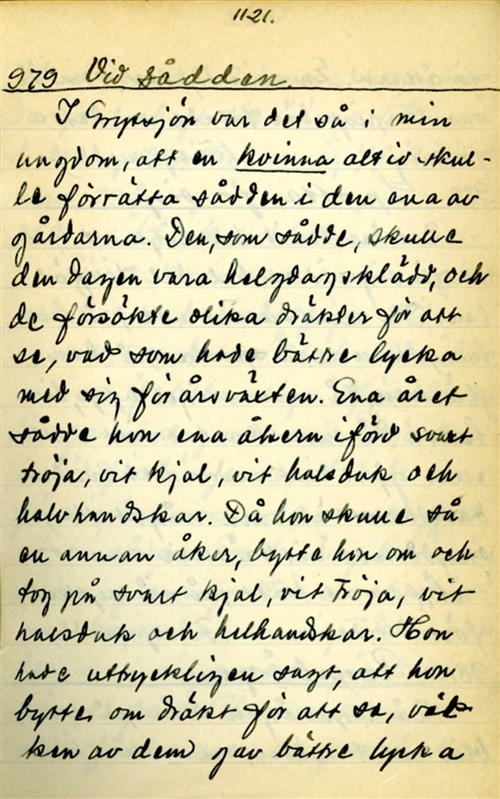 1121.
979 Vid sådden.
I Grytsjön var det så i min
ungdom, att en kvinna altid skul-
le förrätta sådden i den ena av
gårdarna. Den, som sådde, skulle
den dagen vara helgdagsklädd, och
de försökte olika dräkter för att
se, vad som hade bättre lycka
med sig för årsväxten. Ena året
sådde hon ena åkern iförd svart
tröja, vit kjol, vit halsduk och
halvhandskar. Då hon skulle så
en annan åker, bytte hon om och
tog på svart kjol, vit tröja, vit
halsduk och helhandskar. Hon
hade uttryckligen sagt, att hon
bytte om dräkt för att se, vil-
ken av dem gav bättre lycka